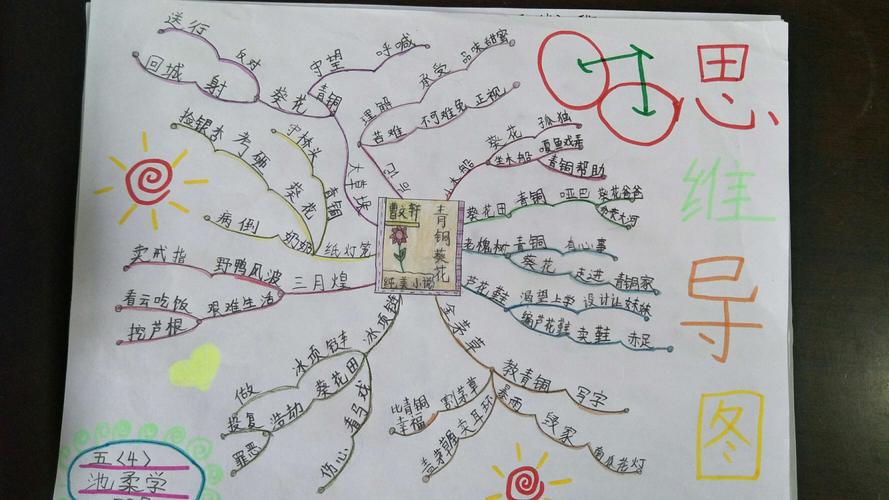 思
维
导
图
曹文轩
青铜葵花
纯美小说
小木船
葵花
孤独
坐木船
嘎鱼戏弄
青铜帮助
葵花田
青铜
哑巴
葵花爸爸
老槐树
青铜
有心事
葵花
走进
青铜家
芦花鞋
渴望上学
设计让妹妹
编芦花鞋
卖鞋
赤足
金茅草
教青铜
写字
暴雨
毁家
割茅草
比青铜
幸福
冰项链
冰项链
做
葵花田
浩动
报复
罪恶
看马戏
伤心
三月煌
野鸭风波
卖戒指
艰难生活
看云吃饭
挖芦根
纸灯笼
奶奶
病倒
葵花
考砸
捡银杏
青铜
守桥头
大草垛
葵花
反对
送行
射
回城
青铜
守望
呼喊
后记
理解
承受
品味甜蜜
苦难
不可避免
正视
五〈4〉
池柔学